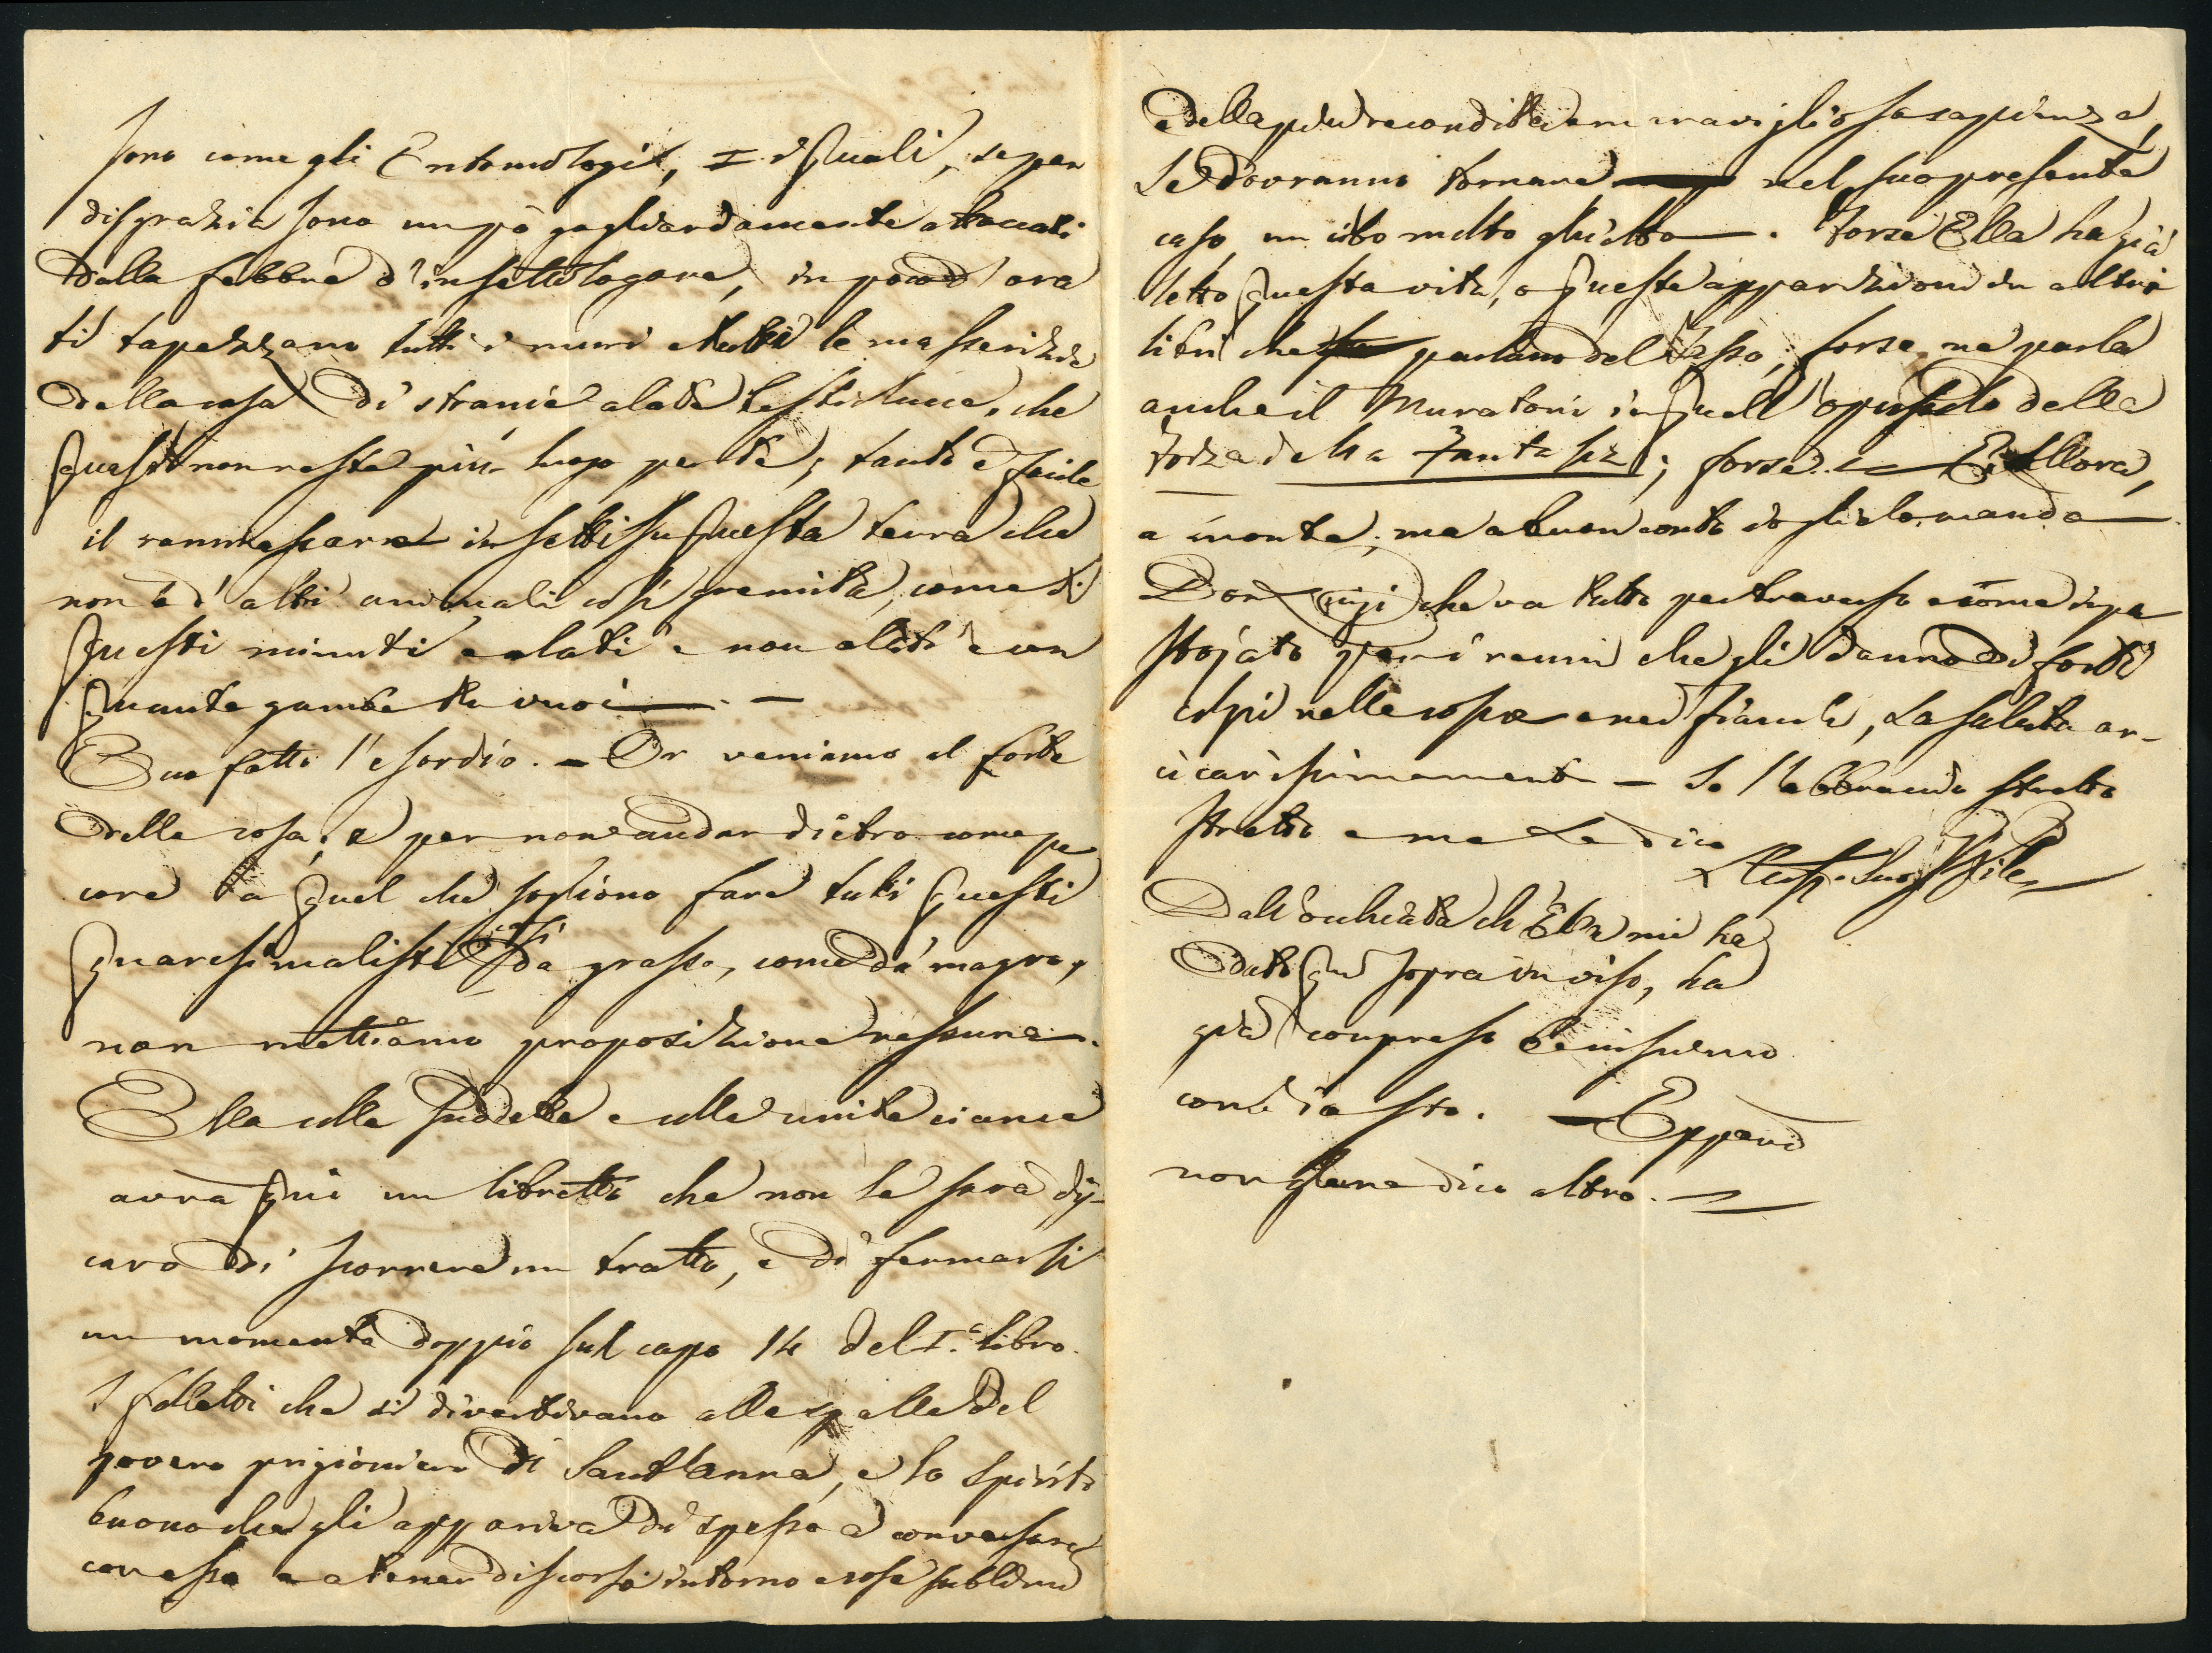 sono come gli Entomologi, i quali, se per
disgrazia sono un pò gagliardamente attaccati
dalla febbre d'insettologare, in poco d'ora
ti tapezzano tutti i muri e tutte le masserizie
della casa di stranie alate bestiolucce, che
quasi non resta più luogo per te; tanto è facile
il rammassare insetti su questa terra che
non è d'altri animali così gremita, come di
questi minuti e alati e non alati e con
quante gambe tu vuoi —. —
Buo fatto l'esordio. — Or veniamo al forte
della cosa; e per non andar dietro come pe
core a quel che sogliono fare tutti questi
quaresimalisti così da grasso, come da magro,
non mettiamo proposizione nessuna.
Ella colla suddetta e colle unite ciance
avrà qui un libretto che non le sarà dis-
caro di scorrere un tratto, e di fermarsi
un momento doppio sul capo 14 del I.° libro.
I folletti che si divertivano alle spalle del
povero prigioniero di Sant'Anna, e lo spirito
buono che gli appariva di spesso a conversare
con esso e a tener discorso intorno a cose sublimi
e della più recondita e maravigliosa sapienza,
Le dovranno tornare nel suo presente
caso, un cibo molto ghiotto —. Forse Ella ha già
letto questa vita, o queste apparizioni in altri
libri che parlano del Tasso; forse ne parla
anche il Muratori in quell'opuscolo della
Forza della Fantasia; forse. — E allora,
a monte; ma a buon conto io glielo mando —.
Don Luigi che va tutto per traverso e come impa
stojato per i reumi che gli danno di forti
colpi nelle coste e nei fianchi, La saluta ar-
cicarissimamente — Io l'abbraccio stretto
stretto e me Le dico
Dall'occhiata ch'Ella mi ha
dato qui sopra in viso, ha
già compreso benissimo
com'io sto. — Eppure
non gliene dico altro. —